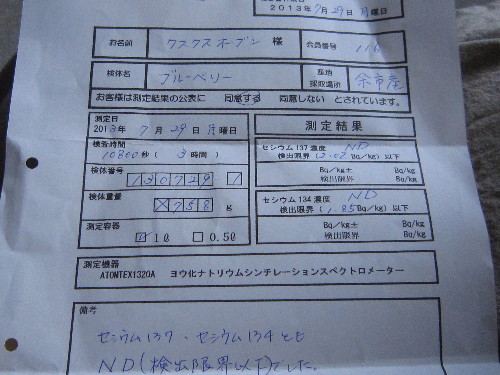 2013年7月29日 月曜日
お名前 クスクスオーブン 様 会員番号 116
検体名 ブルーベリー 産地 採取場所 余市産
お客様は測定結果の公表に 同意する 同意しない とされています。
測定日
2013年 7月 29日 月曜日
測定結果
検査時間
10800秒 ( 3 時間)
セシウム137濃度 ND
検出限界 (2.02Bq/kg) 以下
Bq/kg± Bq/kg
検出限界 Bq/kg
検体番号
130729 1
検体重量
X758 g
セシウム134濃度 ND
検出限界 (1.85Bq/kg) 以下
Bq/kg± Bq/kg
検出限界 Bq/kg
測定容器
☑1ℓ □0.5ℓ
測定機器
ATOMTEX1320A ヨウ化ナトリウムシンチレーションスペクトロメーター
備考
セシウム137、セシウム134とも
ND(検出限界以下)でした。